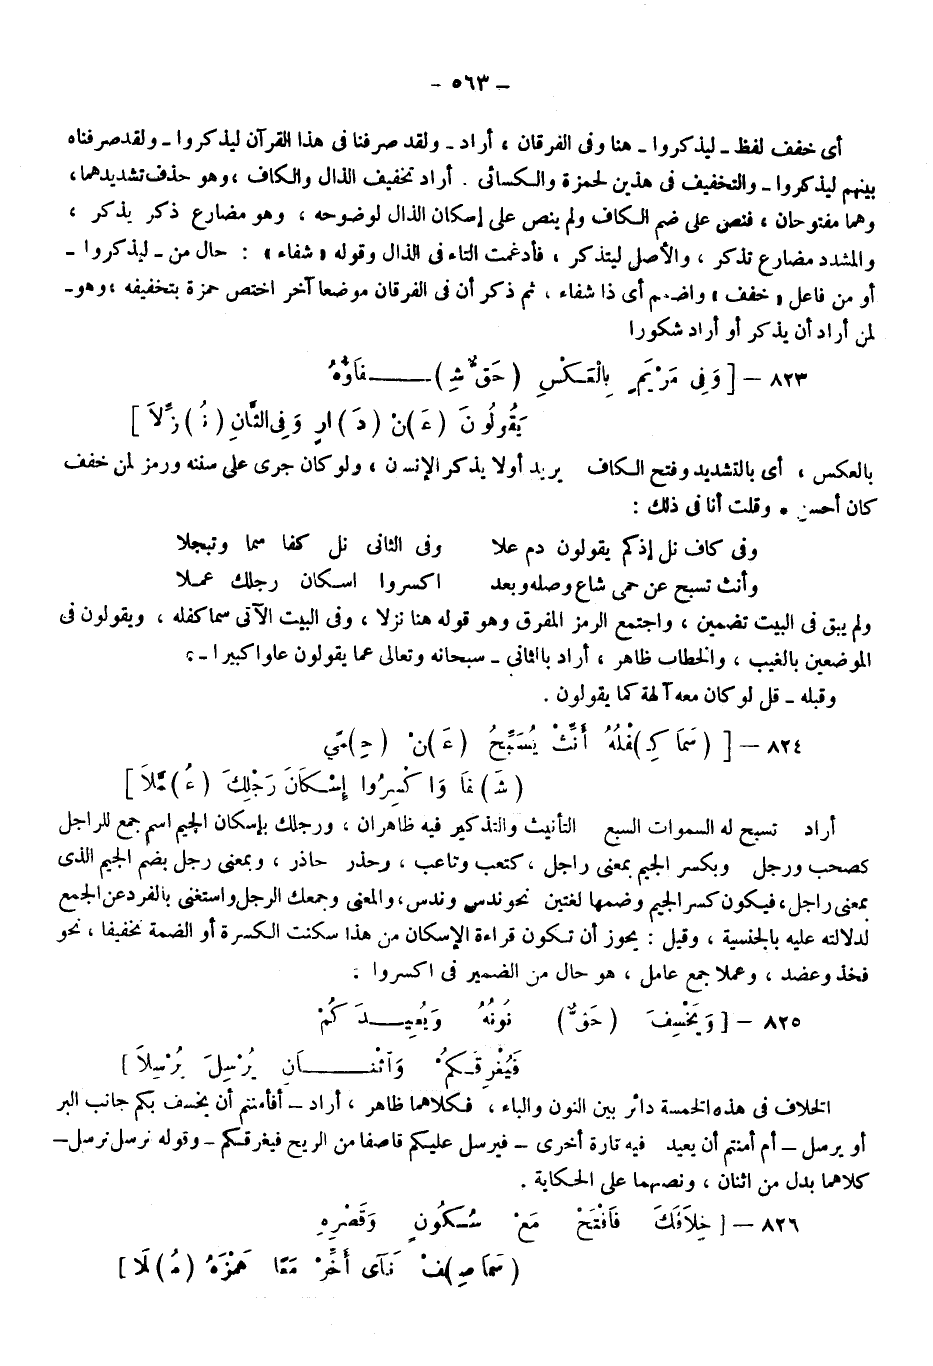 – ٥٦٣ –
أى خفف لفظ ـ ليذكروا ـ هنا وفى الفرقان ، أراد ـ ولقد صرفنا فى هذا القرآن ليذكروا ـ ولقد صرفناه
بينهم ليذكروا ـ والتخفيف فى هذين لحمزة والكسائى . أراد تخفيف الذال والكاف ، وهو حذف تشديدهما ،
وهما مفتوحان ، فنص على ضم الكاف ولم ينص على إسكان الذال لوضوحه ، وهو مضارع ذكر يذكر ،
والمشدد مضارع تذكر ، والأصل ليتذكر ، فأدغمت التاء فى الذال وقوله « شفاء » : حال من ـ ليذكروا ـ
أو من فاعل « خفف » واضمم أى ذا شفاء ، ثم ذكر أن فى الفرقان موضعا آخر اختص حمزة بتخفيفه ، وهو ـ
لمن أراد أن يذكر أو أراد شكورا
٨٢٣ – [ وَفِى مَرْيَمٍ بِالْعَكْسِ (حَقٌّ شِ)ــفَاؤُهُ
يَقُولُونَ (عَ)نْ (دَ)ارٍ وَفِى الثَّانِ (نُ)زِّلاَ ]
بالعكس ، أى بالتشديد وفتح الكاف يريد أولا يذكر الإنسن ، ولو كان جرى على سننه ورمز لمن خفف
كان أحسن . وقلت أنا فى ذلك :
وفى كاف نل إذكم يقولون دم علا وفى الثانى نل كفا سما وتبجلا
وأنث تسبح عن حمى شاع وصله وبعد اكسروا اسكان رجلك عملا
ولم يبق فى البيت تضمين ، واجتمع الرمز المفرق وهو قوله هنا نزلا ، وفى البيت الآتى سما كفله ، ويقولون فى
الموضعين بالغيب ، والخطاب ظاهر ، أراد بالثانى ـ سبحانه وتعالى عما يقولون علوا كبيرا ـ .
وقبله ـ قل لو كان معه آلهة كما يقولون .
٨٢٤ – [ (سَمَا كِ)فْلُهُ أَنِّثْ يُسَبِّحُ (عَ)نْ (حِ)مًى
(شَ)فَا وَاكْسِرُوا إِسْكَانَ رَجْلِكَ (عُ)مَّلاَ ]
أراد تسبح له السموات السبع التأنيث والتذكير فيه ظاهران ، ورجلك بإسكان الجيم اسم جمع للراجل
كصحب ورجل وبكسر الجيم بمعنى راجل ، كتعب وتاعب ، وحذر حاذر ، وبمعنى رجل بضم الجيم الذى
بمعنى راجل ، فيكون كسر الجيم وضمها لغتين نحو ندس وندس ، والمعنى وجمعك الرجل واستغنى بالفرد عن الجمع
لدلالته عليه بالجنسية ، وقيل : يجوز أن تكون قراءة الإسكان من هذا سكنت الكسرة أو الضمة تخفيفا ، نحو
فخذ وعضد ، وعملا جمع عامل ، هو حال من الضمير فى اكسروا :
٨٢٥ – [ وَيَخْسِفَ (حَقٌّ) نُونُهُ وَيُعِيدَكُمْ
فَيُغْرِقَكُمْ وَاثْنَــانِ يُرْسِلَ يُرْسِلاَ ]
الخلاف فى هذه الخمسة دائر بين النون والياء ، فكلاهما ظاهر ، أراد ـ أفأمنتم أن يخسف بكم جانب البر
أو يرسل ـ أم أمنتم أن يعيد فيه تارة أخرى ـ فيرسل عليكم قاصفا من الريح فيغرقكم ـ وقوله نرسل نرسل ـ
كلاهما بدل من اثنان ، ونصبهما على الحكاية .
٨٢٦ – [ خِلاَفَكَ فَافْتَحْ مَعْ سُكُونٍ وَقَصْرِهِ
(سَمَا صِ)فْ نَآى أَخِّرْ مَعًا هَمْزَهُ (مُ)لاَ ]